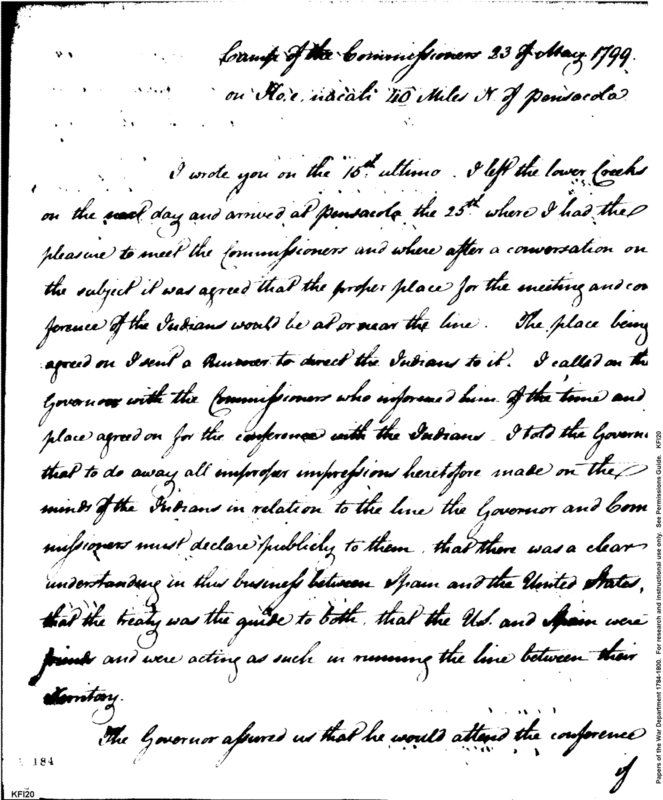 Camp of the Commissioners 23 of May 1799.
on Ko,e,nacali 40 Miles N. of Pensacola
I wrote you on the 15th ultimo. I left the lower Creeks
on the next day and arrived at Pensacola the 25th where I had the
pleasure to meet the Commissioners and where after a conversation on
the subject it was agreed that the proper place for the meeting and con
ference of the Indians would be at or near the line. The place being
agreed on I sent a Runner to direct the Indians to it. I called on the
Governor with the Commissioners who informed him of the time and
place agreed on for the conference with the Indians. I told the Govern
that to do away all improper impressions heretofore made on the
minds of the Indians in relation to the line the Governor and Com
missioners must declare publicly to them, that there was a clear
understanding in this business between Spain and the United States,
that the treaty was the guide to both, that the U.S. and Spain were
friends and were acting as such in running the line between their
territory.
The Governor assured us that he would attend the conference
if
184
KFI20
Papers of the War Department 1784-1800. For research and instructional use only. See Permissions Guide. KFI20